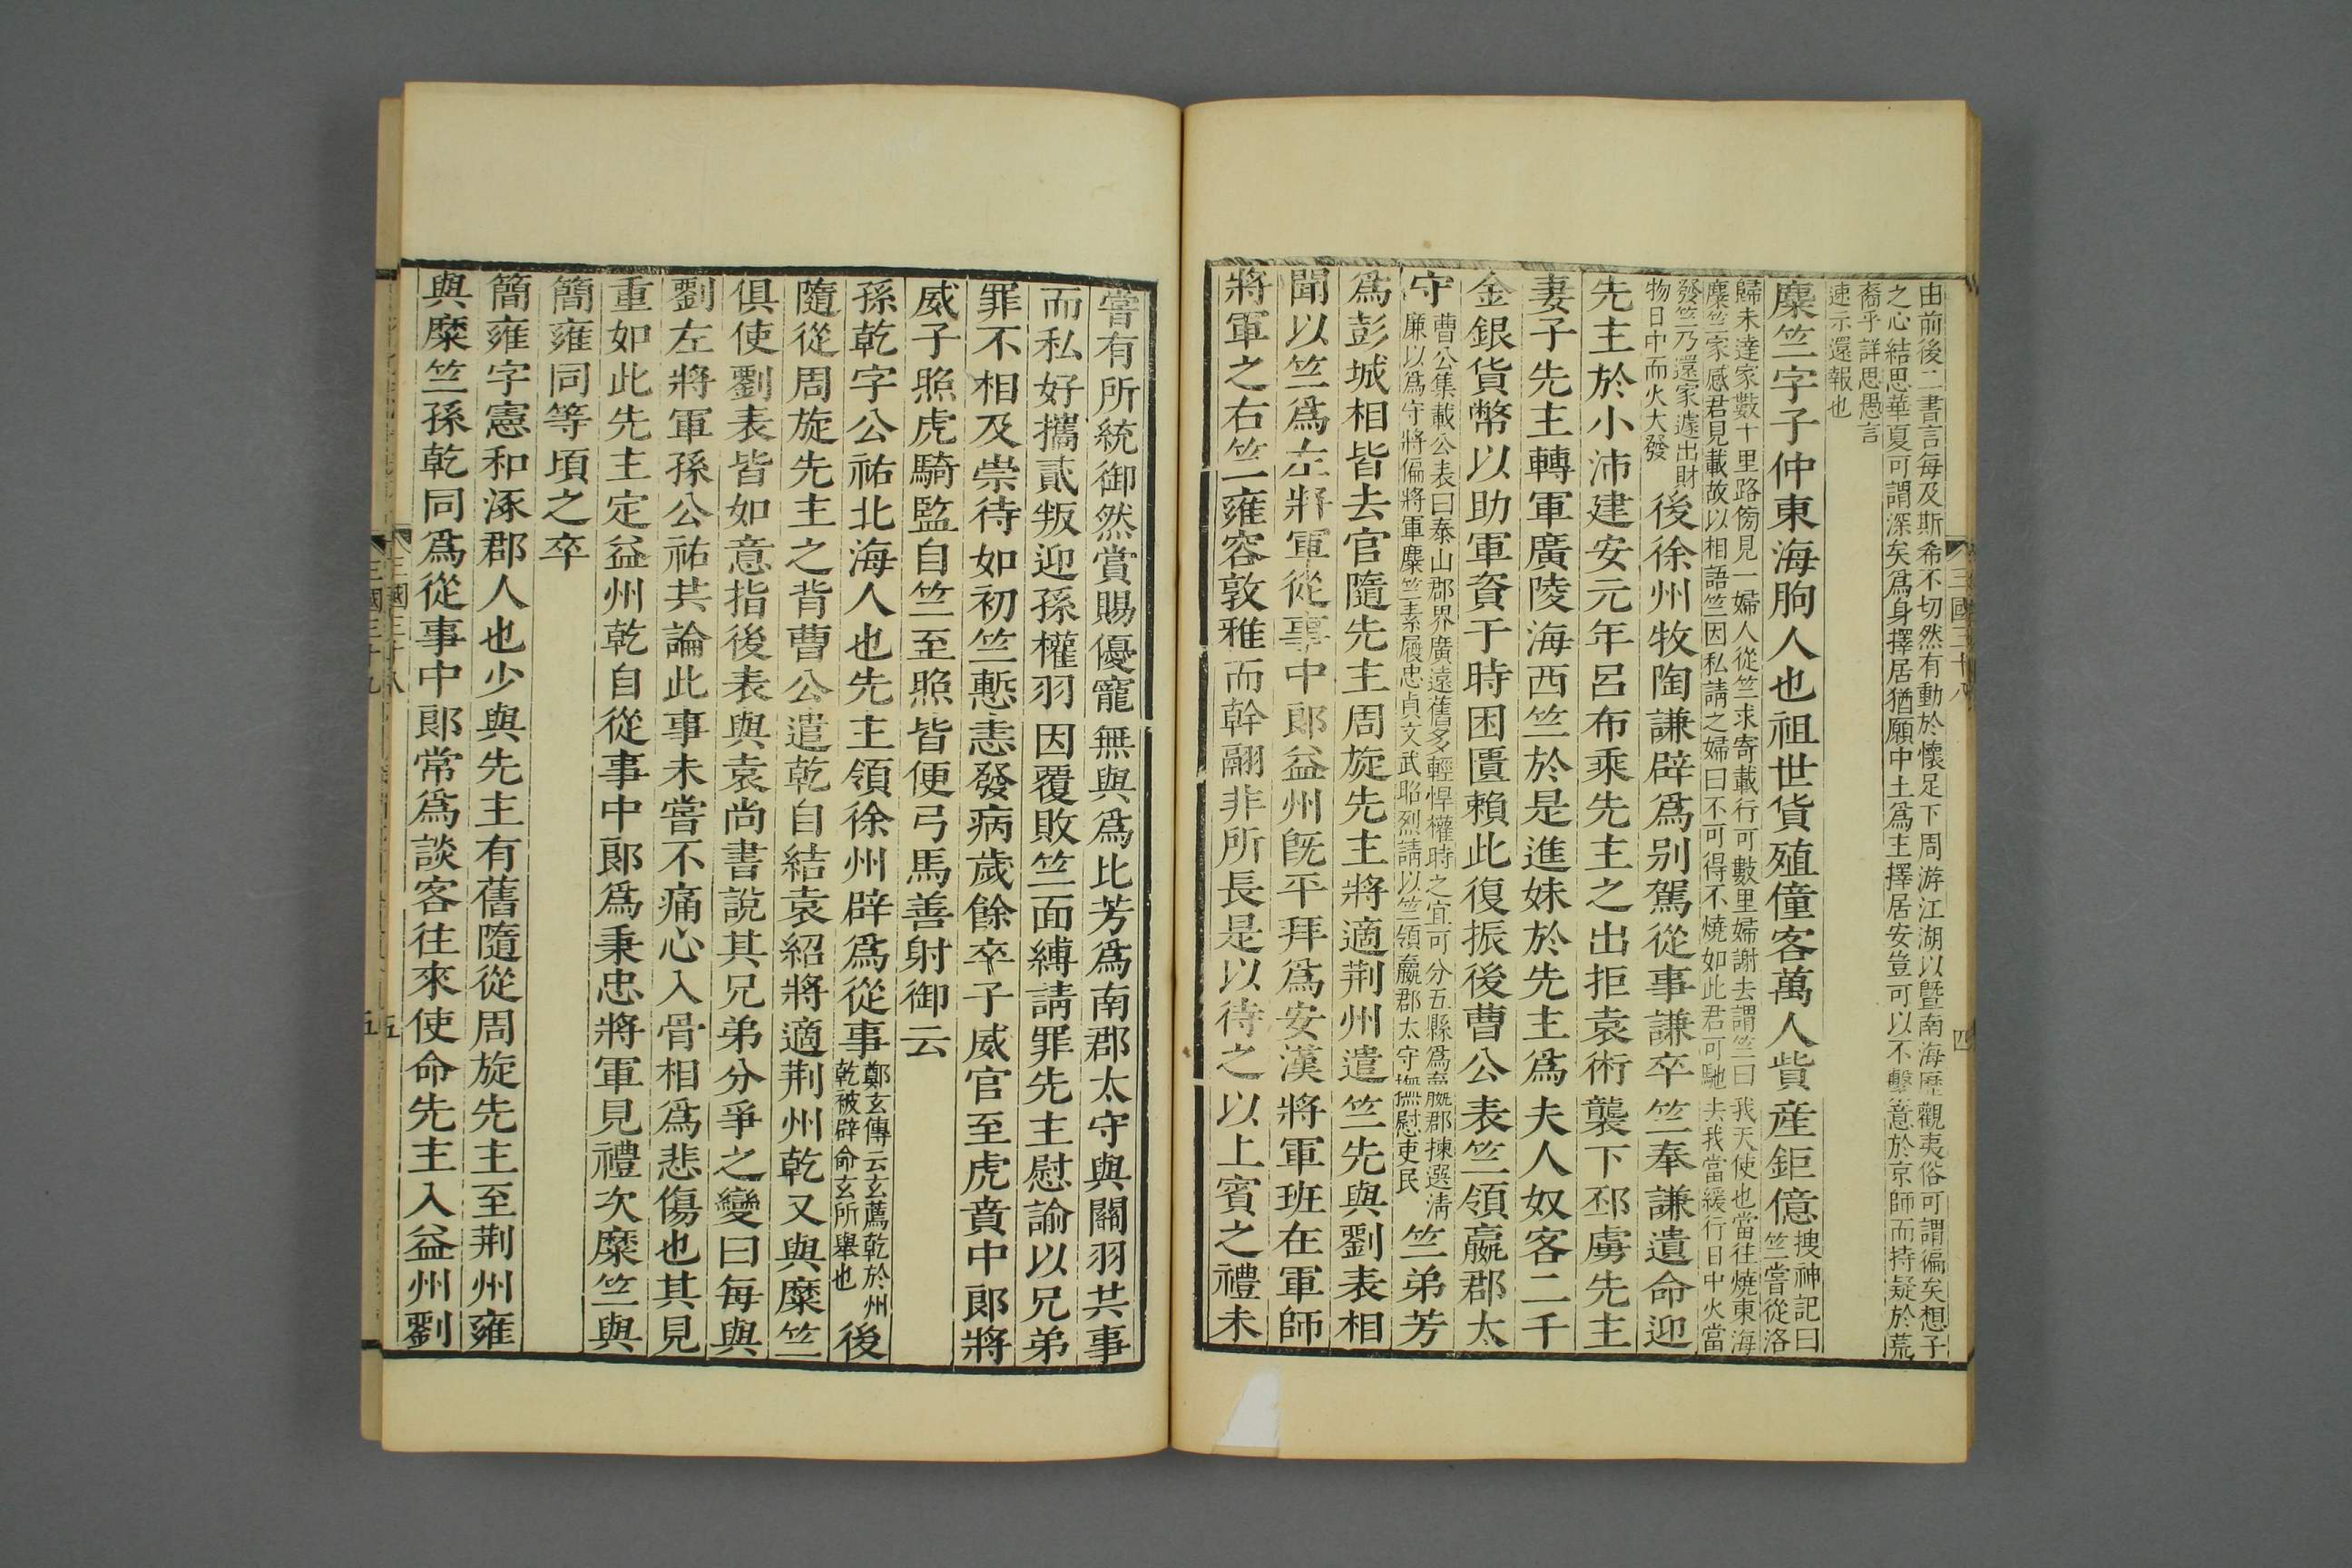 由前後二書言每及斯希不切然有動於懷足下周游江湖以曁南海歷觀夷俗可謂徧矣想子
之心結思華夏可謂深矣爲身擇居猶願中土爲主擇居安豈可以不繫意於京師而持疑於荒
裔乎詳思愚言
速示還報也
麋竺字子仲東海朐人也祖世貨殖僮客萬人貲産鉅億搜神記曰
竺嘗從洛
歸未達家數十里路傍見一婦人從竺求寄載行可數里婦謝去謂竺曰我天使也當往燒東海
麋竺家感君見載故以相語竺因私請之婦曰不可得不燒如此君可馳去我當緩行日中火當
發竺乃還家遽出財
物日中而火大發
後徐州牧陶謙辟爲别駕從事謙卒竺奉謙遺命迎
先主於小沛建安元年呂布乘先主之出拒袁術襲下邳虜先主
妻子先主轉軍廣陵海西竺於是進妹於先主爲夫人奴客二千
金銀貨幣以助軍資于時困匱賴此復振後曹公表竺領嬴郡太
守
曹公集載公表曰泰山郡界廣遠舊多輕悍權時之宜可分五縣爲嬴郡揀選淸
廉以爲守將偏將軍麋竺素履忠貞文武昭烈請以竺領嬴郡太守撫慰吏民
竺弟芳
爲彭城相皆去官隨先主周旋先主將適荆州遣竺先與劉表相
聞以竺爲左將軍從事中郎益州既平拜爲安漢將軍班在軍師
將軍之右竺雍容敦雅而幹翮非所長是以待之以上賓之禮未
三國三十八
四
嘗有所統御然賞賜優寵無與爲比芳爲南郡太守與關羽共事
而私好攜貳叛迎孫權羽因覆敗竺面縛請罪先主慰諭以兄弟
罪不相及崇待如初竺慙恚發病歲餘卒子威官至虎賁中郎將
威子照虎騎監自竺至照皆便弓馬善射御云
孫乾字公祐北海人也先主領徐州辟爲從事
鄭玄傳云玄薦乾於州
乾被辟命玄所舉也
後
隨從周旋先主之背曹公遣乾自結袁紹將適荆州乾又與糜竺
俱使劉表皆如意指後表與袁尚書說其兄弟分爭之變曰每與
劉左將軍孫公祐共論此事未嘗不痛心入骨相爲悲傷也其見
重如此先主定益州乾自從事中郎爲秉忠將軍見禮次糜竺與
簡雍同等頃之卒
簡雍字憲和涿郡人也少與先主有舊隨從周旋先主至荆州雍
與糜竺孫乾同爲從事中郎常爲談客往來使命先主入益州劉
三國三十八
五
三國三十九
五